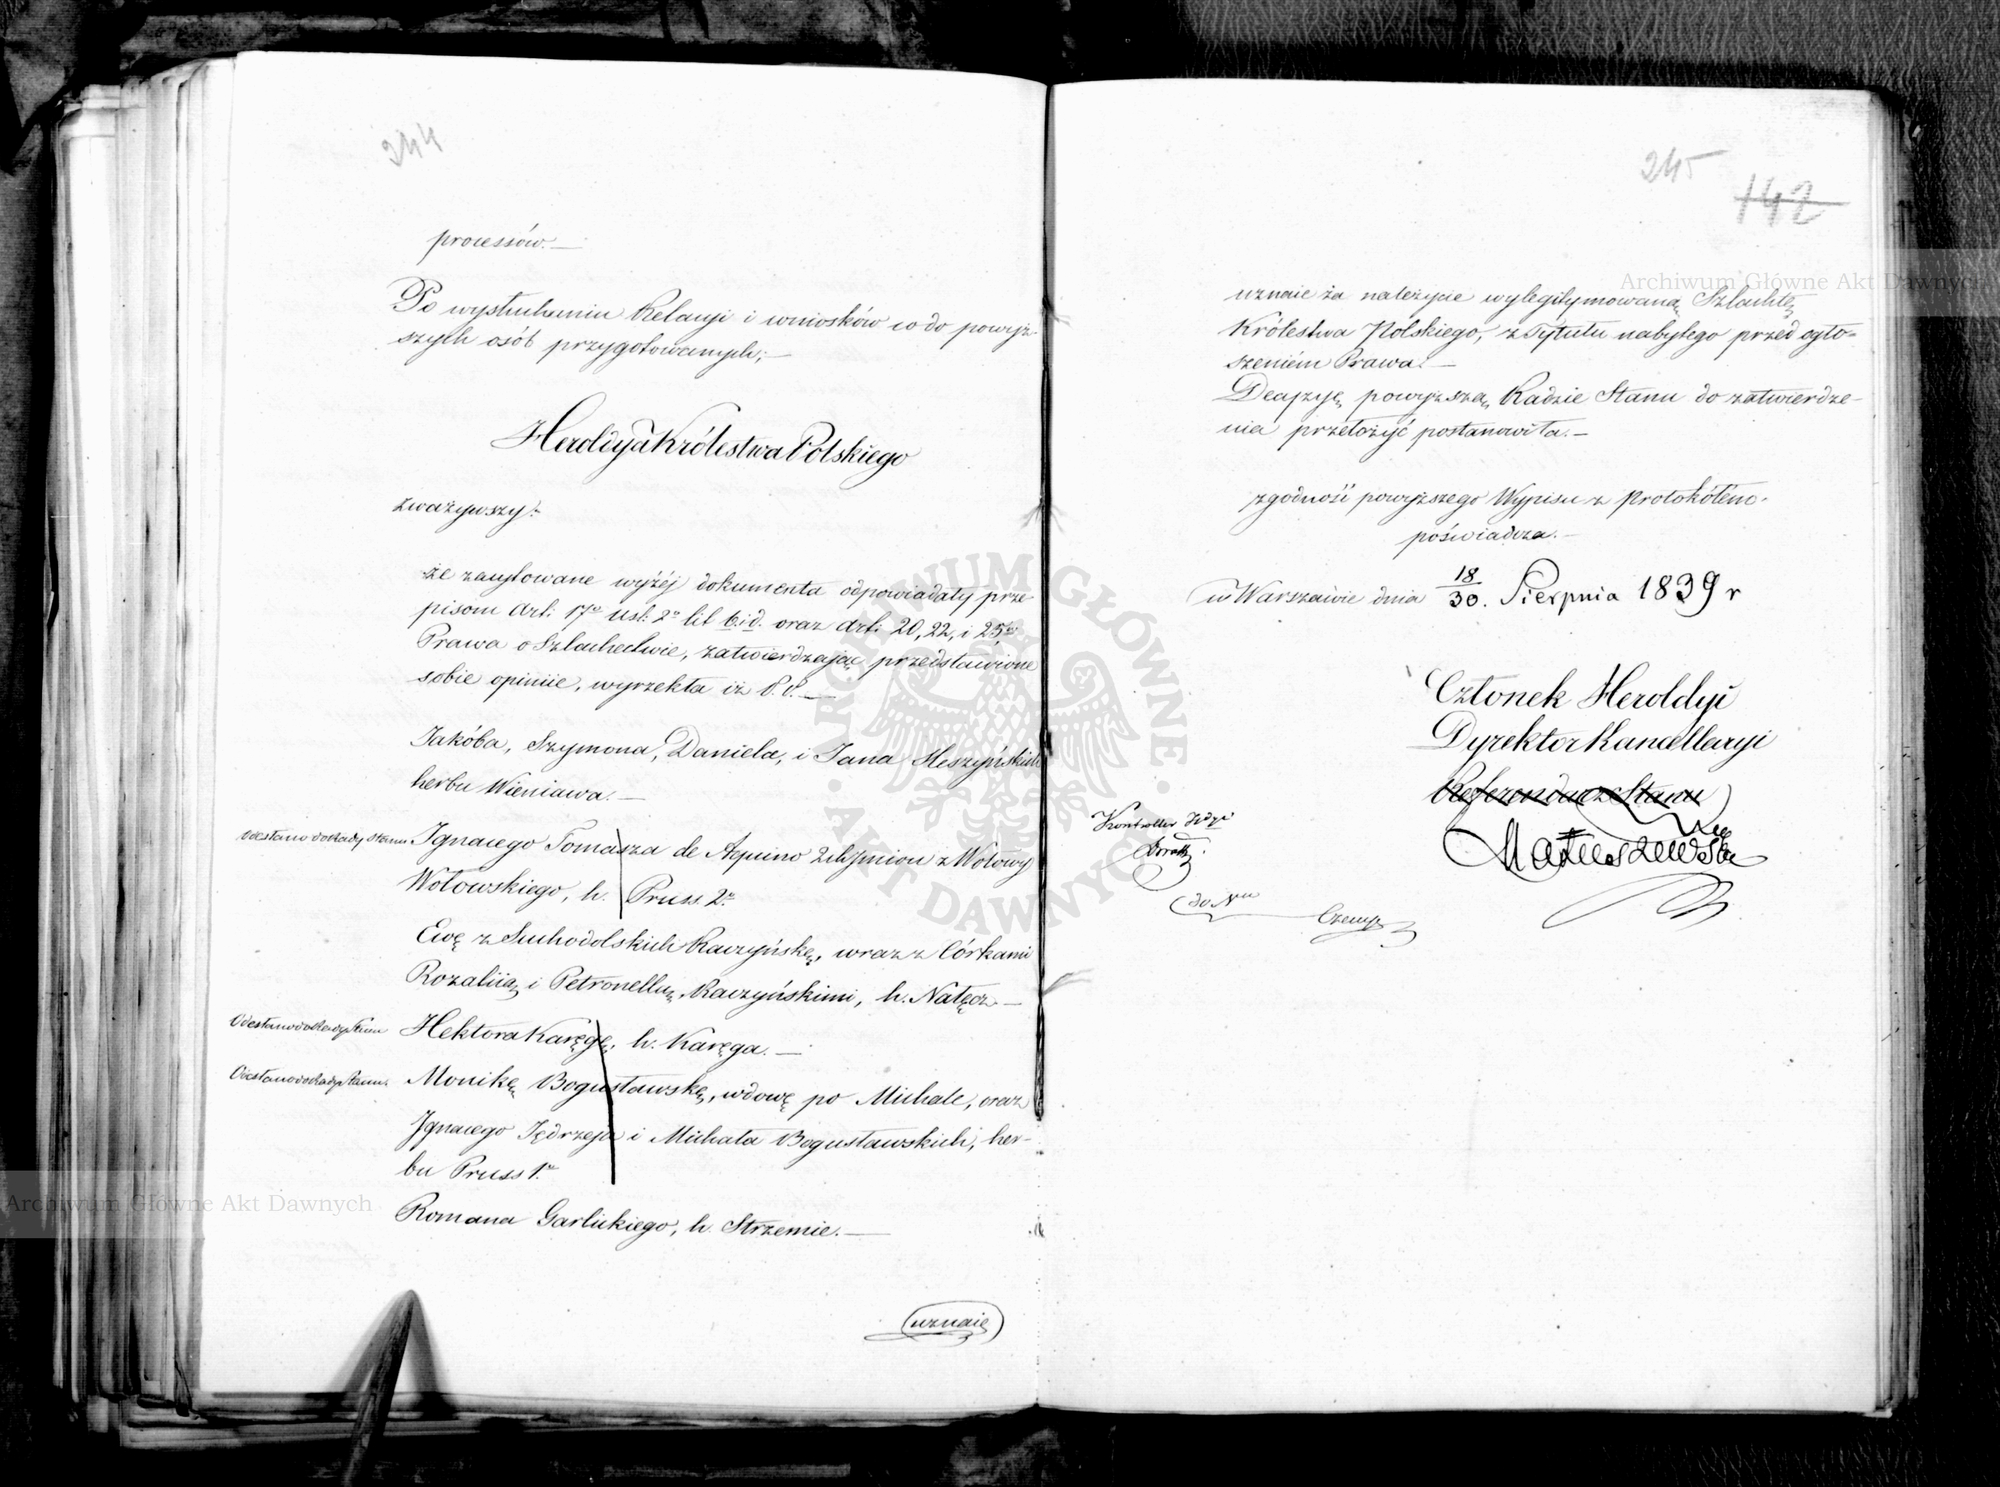 244
processów.—
Po wysłuchaniu Relacyi i wniosków co do powyż-
szych osób przygotowanych;—
Heroldya Królestwa Polskiego
zważywszy:
że zacytowane wyżéj dokumenta odpowiadały prze-
pisom Art: 17º Ust: 2º lit b.i d. oraz Art: 20, 22, i 25go
Prawa o Szlachectwie, zatwierdzając przedstawione
sobie opiniie, wyrzekła iż P.P.—
Jakóba, Szymona, Daniela, i Jana Heszyńskich
herbu Wieniawa.—
Odesłano do Rady Stanu
Ignacego Tomasza de Aquino 2ch Jmion z Wołowy
Wołowskiego, h. Pruss 2º
Ewę z Suchodolskich Raczyńskę, wraz z Córkami
Rozaliią i Petronellą, Raczyńskimi, h. Nałęcz.—
Odesłano do Rady Stanu
Hektora Karęgę, h. Karęga.—
Odesłano do Rady Stanu
Monikę Bogusławskę, wdowę po Michale, oraz
Ignacego Jędrzeja i Michała Bogusławskich, her-
bu Pruss 1º
Romana Garlickiego, h. Strzemie.—
uznaie
245
142
uznaie za należycie wylegitymowaną Szlachtę
Królestwa Polskiego, z Tytułu nabytego przed ogło-
szeniém Prawa.—
Decyzyę powyższą Radzie Stanu do zatwierdze-
nia przełożyć postanowiła.—
zgodność powyższego Wypisu z Protokółem
poświadcza.—
w Warszawie dnia 18/30. Sierpnia 1839 r
Członek Heroldyi
Dyrektor Kancellaryi
Referendarz Stanu
Matuszewski
Kontroller
Archiwum Główne Akt Dawnych
Archiwum Główne Akt Dawnych
ARCHIWUM GŁÓWNE · AKT DAWNYCH ·